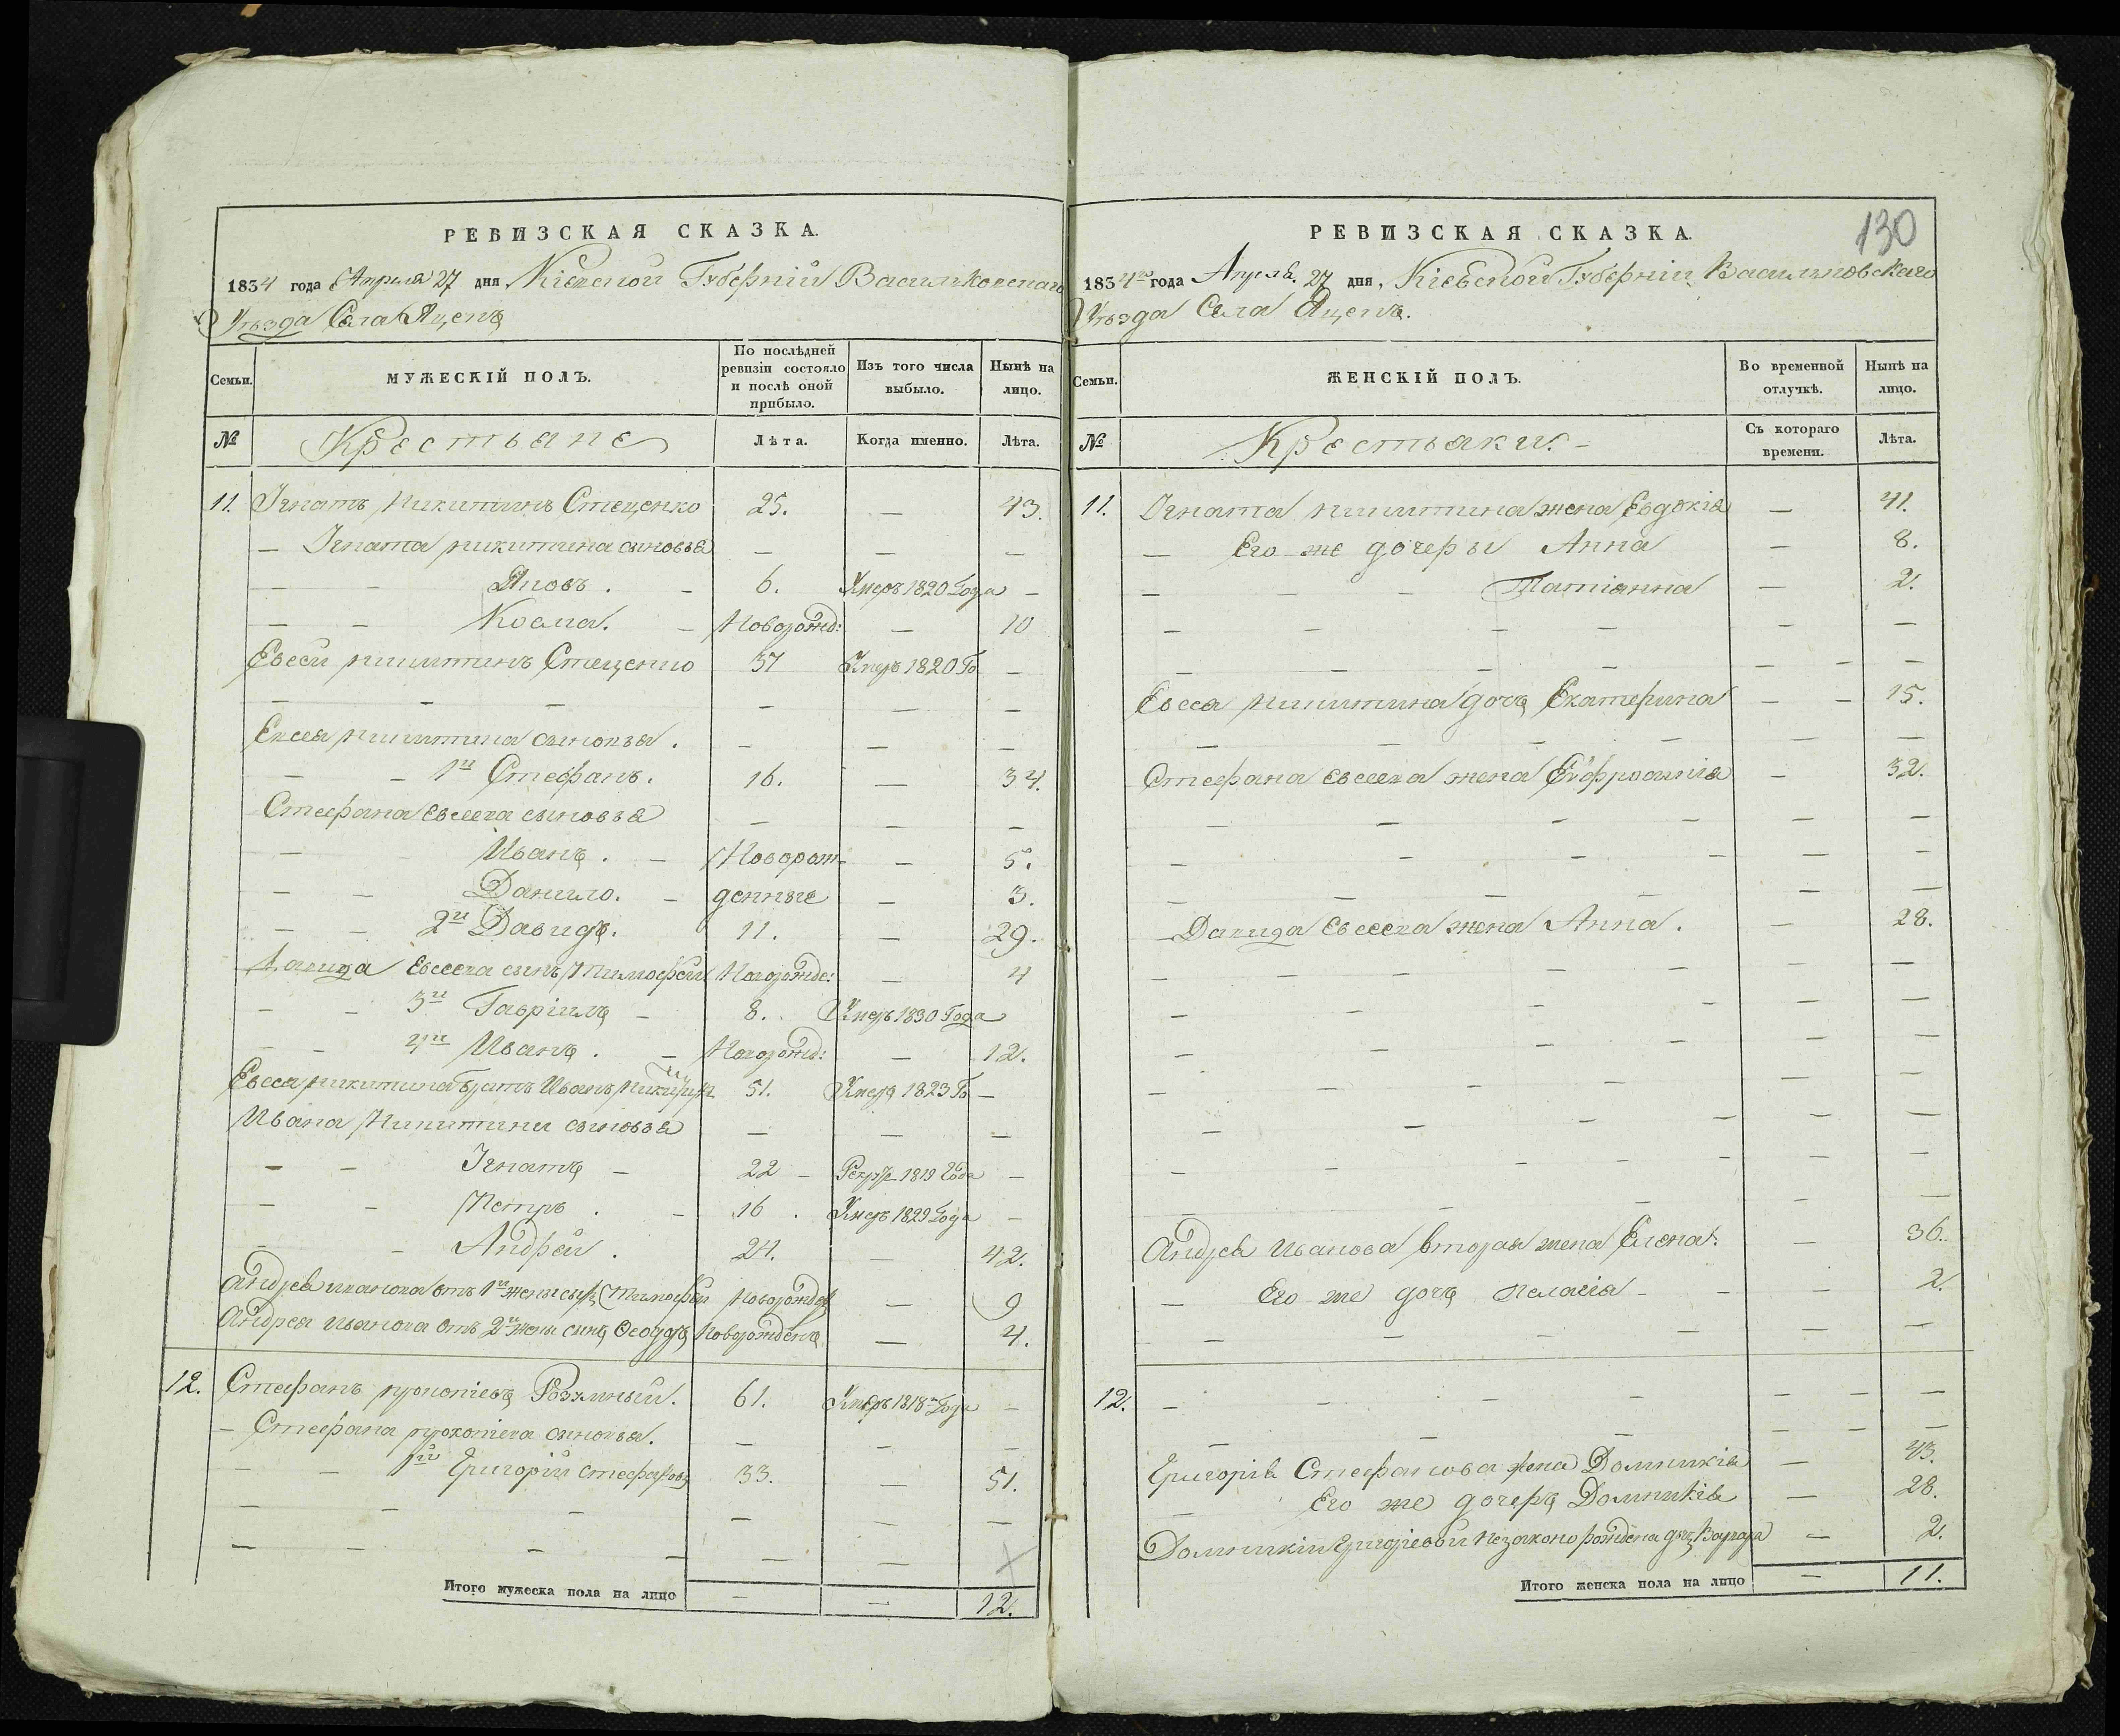 РЕВИЗСКАЯ СКАЗКА.
1834 года Апреля 27 дня Кіевской Губерніи Васильковскаго
Уѣзда Села Яцекъ
Семьи.
МУЖЕСКІЙ ПОЛЪ.
По послѣдней ревизіи состояло и послѣ оной прибыло.
Изъ того числа выбыло.
Нынѣ на лицо.
№ Крестьяне Лѣта. Когда именно. Лѣта.
11. Игнатъ Никитинъ Стеценко 25. — 43.
— Игната никитина сыновья — — —
— — Яковъ. — 6. Умеръ 1820 Года —
— — Косма. — Новорожд: — 10
Евсей никитинъ Стеценко 37 Умеръ 1820 Го —
— — — — — —
Евсея никитина сыновья. — — —
— — 1й Стефанъ. 16. — 34.
Стефана Евсеева сыновья — — —
— Иванъ. — Новорож- — 5.
— — Данило. — денные — 3.
— — 2й Давидъ. 11. — 29.
Давида Евсеева сынъ Тимофей Новорожде: — 4
— — 3й Гавріилъ — 8. Умеръ 1830 Года
— — 4й Иванъ. — Новорожд: — 12.
Евсея никитина братъ Иванъ Никитинъ 51. Умеръ 1823 Го —
Ивана Никитина сыновья — — —
— — Игнатъ — 22 — Рекру 1819 Года —
— — Петръ. — 16. Умеръ 1829 Года —
— — Андрей. 24. — 42.
Андрея иванова отъ 1й жены сынъ Тимофей новорожден — 9
Андрея иванова отъ 2й жены сынъ Феодоръ новорожденъ — 4.
12. Стефанъ прокопіевъ Розумный. 61. Умеръ 1818го Года —
— Стефана прокопіева сыновья. — — —
— — 1й Григорій Стефановъ 33. — 51.
— — — — — —
— — — — — — —
Итого мужеска пола на лицо — — 12.
130
РЕВИЗСКАЯ СКАЗКА.
1834го года Апреля 27 дня Кіевской Губерніи Васильковскаго
Уѣзда Села Яцекъ.
Семьи.
ЖЕНСКІЙ ПОЛЪ.
Во временной отлучкѣ.
Нынѣ на лицо.
№ Крестьянки. — Съ котораго времени. Лѣта.
11. Игната никитина жена Евдокія — 41.
— Его же дочеры Анна — 8.
— — — Татіанна — 2.
— — — — — —
— — — — — — —
Евсея никитина дочъ Екатерина — — 15.
— — — — — —
Стефана Евсеева жена Евфросинія — 32.
— — — — — —
— — — — — —
— — — — — —
— Давида Евсеева жена Анна. — 28.
— — — — — —
— — — — — —
— — — — — —
— — — — — —
— — — — — —
— — — — — —
— — — — —
Андрея Иванова вторая жена Елена. — 36.
— Его же дочъ пелагія — — — 2.
— — — — — —
12. — — — — — —
— — — — — —
Григорія Стефанова жена Домникія — 43.
— Его же дочеръ Домникія — 28.
Домникіи Григоріевой незаконорождена дочъ Варвара — 2.
Итого женска пола на лицо — 11.